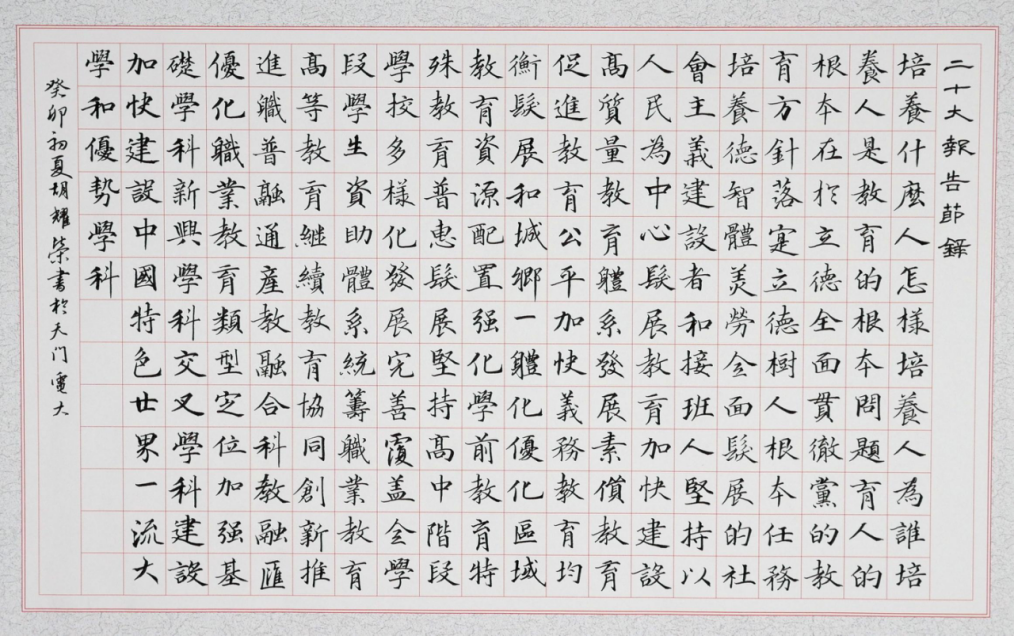 二十大報告節録
培養什麼人怎樣培養人為誰培
養人是教育的根本問題育人的
根本在於立德全面貫徹黨的教
育方針落寔立德樹人根本任務
培養德智體美勞全面髮展的社
會主義建設者和接班人堅持以
人民為中心髮展教育加快建設
高質量教育體系發展素價教育
促進教育公平加快義務教育均
衡髮展和城鄉一體化優化區域
教育資源配置强化學前教育特
殊教育普惠髮展堅持高中階段
學校多様化發展完善覆盖全學
段學生資助體系統籌職業教育
高等教育繼續教育協同創新推
進職普融通産教融合科教融匯
優化職業教育類型定位加强基
礎學科新興學科交叉學科建設
加快建設中國特色世界一流大
學和優勢學科
癸卯初夏胡耀榮書於天门電大